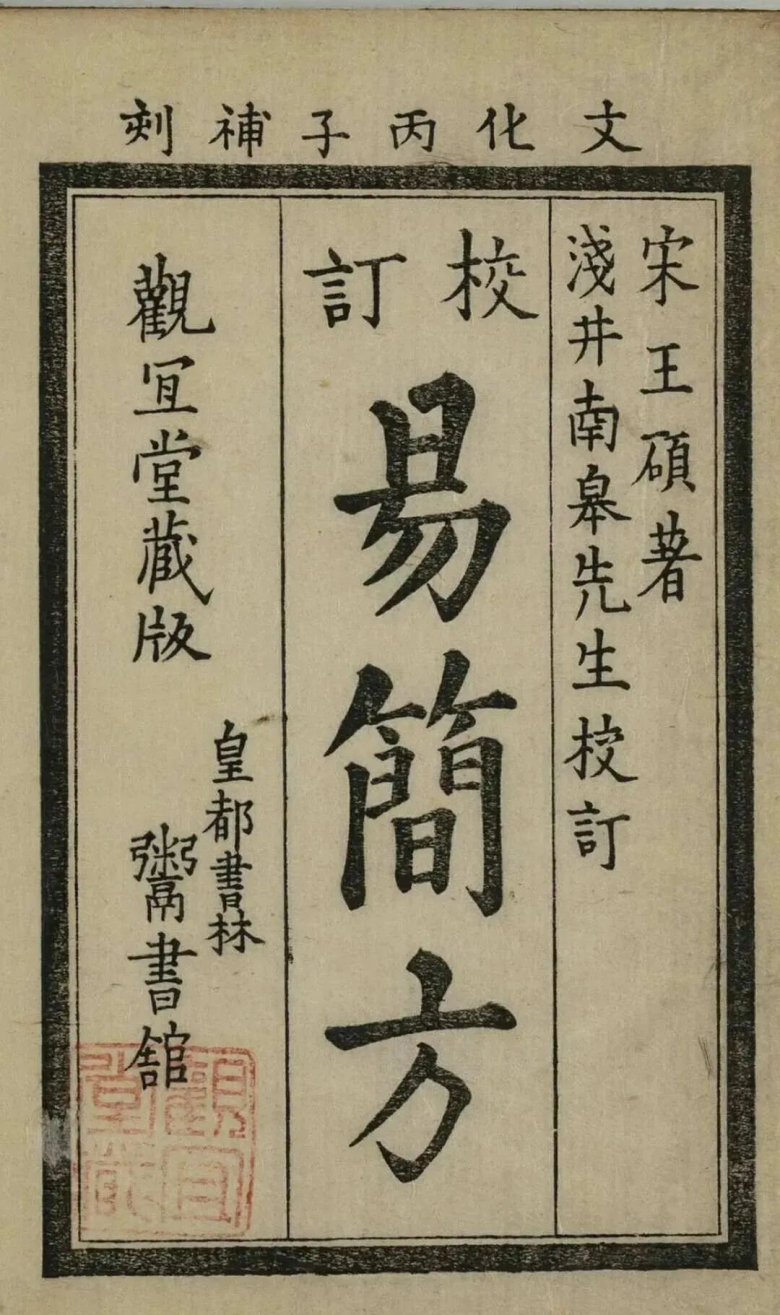 文化丙子補刻
宋王碩著
淺井南皋先生校訂
校訂
易簡方
觀宜堂藏版
皇都書林
鬻書館
觀宜堂藏